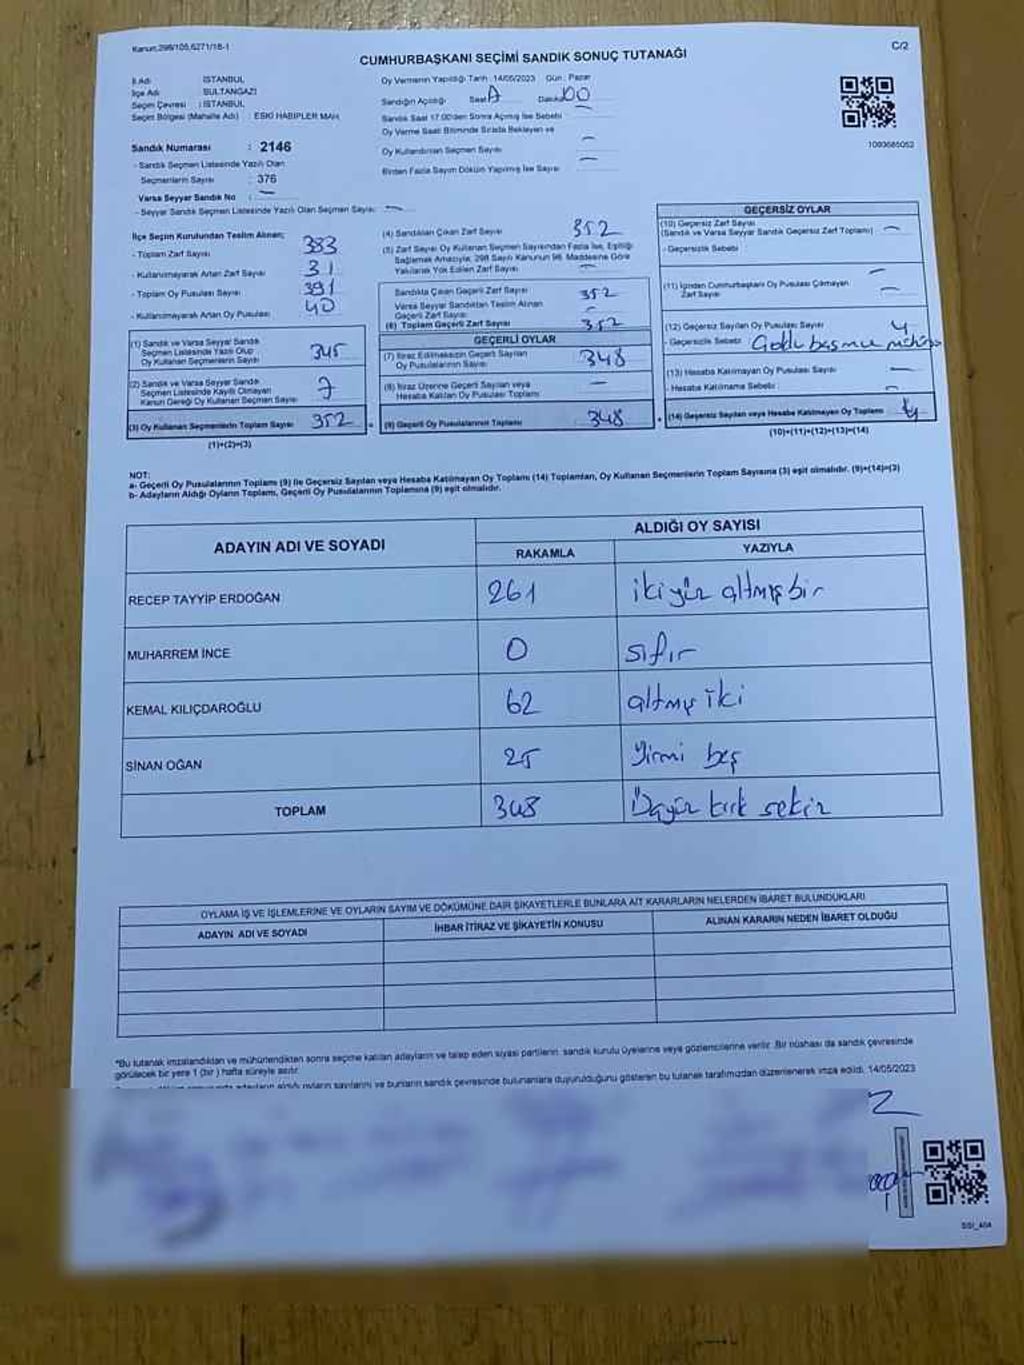 Kanun;298/105,6271/18-1
C/2
CUMHURBAŞKANI SEÇİMİ SANDIK SONUÇ TUTANAĞI
İl Adı : İSTANBUL
İlçe Adı : SULTANGAZİ
Seçim Çevresi : İSTANBUL
Seçim Bölgesi (Mahalle Adı) : ESKİ HABİPLER MAH.
Oy Vermenin Yapıldığı Tarih : 14/05/2023 Gün : Pazar
Sandığın Açıldığı Saat Dakika 00
Sandık Saat 17.00'den Sonra Açılmış İse Sebebi
Oy Verme Saati Bitiminde Sırada Bekleyen ve
Oy Kullandırılan Seçmen Sayısı —
Birden Fazla Sayım Döküm Yapılmış İse Sayısı —
1093685052
Sandık Numarası : 2146
- Sandık Seçmen Listesinde Yazılı Olan
Seçmenlerin Sayısı : 376
Varsa Seyyar Sandık No : —
- Seyyar Sandık Seçmen Listesinde Yazılı Olan Seçmen Sayısı: —
İlçe Seçim Kurulundan Teslim Alınan;
- Toplam Zarf Sayısı 383
- Kullanılmayarak Artan Zarf Sayısı 31
- Toplam Oy Pusulası Sayısı 391
- Kullanılmayarak Artan Oy Pusulası 40
(1) Sandık ve Varsa Seyyar Sandık
Seçmen Listesinde Yazılı Olup
Oy Kullanan Seçmenlerin Sayısı 345
(2) Sandık ve Varsa Seyyar Sandık
Seçmen Listesinde Kayıtlı Olmayan
Kanun Gereği Oy Kullanan Seçmen Sayısı 7
(3) Oy Kullanan Seçmenlerin Toplam Sayısı 352
(1)+(2)=(3)
(4) Sandıktan Çıkan Zarf Sayısı 352
(5) Zarf Sayısı Oy Kullanan Seçmen Sayısından Fazla İse, Eşitliği
Sağlamak Amacıyla; 298 Sayılı Kanunun 98. Maddesine Göre
Yakılarak Yok Edilen Zarf Sayısı —
Sandıkta Çıkan Geçerli Zarf Sayısı 352
Varsa Seyyar Sandıktan Teslim Alınan
Geçerli Zarf Sayısı —
(6) Toplam Geçerli Zarf Sayısı 352
GEÇERLİ OYLAR
(7) İtiraz Edilmeksizin Geçerli Sayılan
Oy Pusulalarının Sayısı 348
(8) İtiraz Üzerine Geçerli Sayılan veya
Hesaba Katılan Oy Pusulası Toplamı —
(9) Geçerli Oy Pusulalarının Toplamı 348
GEÇERSİZ OYLAR
(10) Geçersiz Zarf Sayısı
(Sandık ve Varsa Seyyar Sandık Geçersiz Zarf Toplamı) —
- Geçersizlik Sebebi —
(11) İçinden Cumhurbaşkanı Oy Pusulası Çıkmayan
Zarf Sayısı —
(12) Geçersiz Sayılan Oy Pusulası Sayısı 4
- Geçersizlik Sebebi
(13) Hesaba Katılmayan Oy Pusulası Sayısı —
- Hesaba Katılmama Sebebi —
(14) Geçersiz Sayılan veya Hesaba Katılmayan Oy Toplamı 4
(10)+(11)+(12)+(13)=(14)
NOT:
a- Geçerli Oy Pusulalarının Toplamı (9) ile Geçersiz Sayılan veya Hesaba Katılmayan Oy Toplamı (14) Toplamları, Oy Kullanan Seçmenlerin Toplam Sayısına (3) eşit olmalıdır. (9)+(14)=(3)
b- Adayların Aldığı Oyların Toplamı, Geçerli Oy Pusulalarının Toplamına (9) eşit olmalıdır.
ADAYIN ADI VE SOYADI
ALDIĞI OY SAYISI
RAKAMLA YAZIYLA
RECEP TAYYİP ERDOĞAN 261 ikiyüz altmış bir
MUHARREM İNCE 0 sıfır
KEMAL KILIÇDAROĞLU 62 altmış iki
SİNAN OĞAN 25 Yirmi beş
TOPLAM 348 Üçyüz kırk sekiz
OYLAMA İŞ VE İŞLEMLERİNE VE OYLARIN SAYIM VE DÖKÜMÜNE DAİR ŞİKAYETLERLE BUNLARA AİT KARARLARIN NELERDEN İBARET BULUNDUKLARI
ADAYIN ADI VE SOYADI İHBAR İTİRAZ VE ŞİKAYETİN KONUSU ALINAN KARARIN NEDEN İBARET OLDUĞU
*Bu tutanak imzalandıktan ve mühürlendikten sonra seçime katılan adayların ve talep eden siyasi partilerin sandık kurulu üyelerine veya gözlemcilerine verilir. Bir nüshası da sandık çevresinde
görülecek bir yere 1 (bir) hafta süreyle asılır.
adayların aldığı oyların sayılarını ve bunların sandık çevresinde bulunanlara duyurulduğunu gösteren bu tutanak tarafımızdan düzenlenerek imza edildi. 14/05/2023
SSI_40A